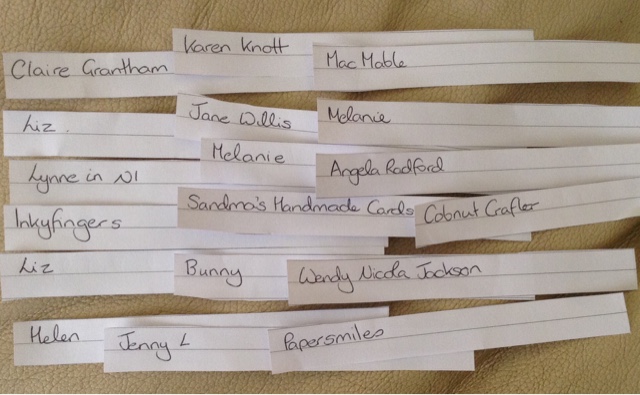 Karen Knott
Claire Grantham
Mac Mable
Liz.
Jane Willis
Melanie
Melanie
Lynne in NI
Angela Radford
Sandma's Handmade Cards
Cobnut Crafter
Inkyfingers
Liz
Bunny
Wendy Nicola Jackson
Helen
Jenny L
Papersmiles